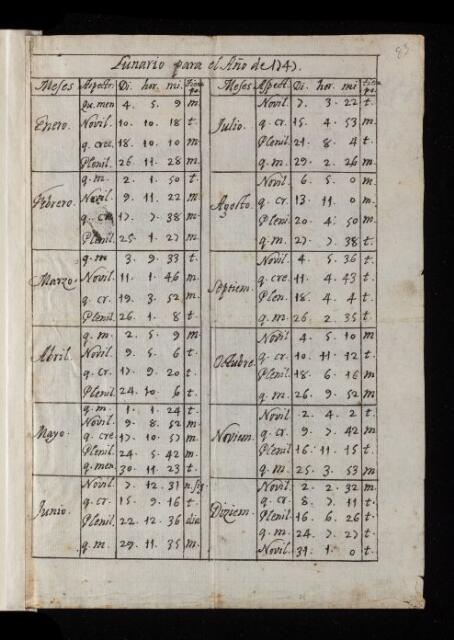 83
Lunario para el Año de 1747.
Meses Aspect. Di. hor. mi. Tiem pe. Meses Aspect. Di. hor. mi. tiem pe.
Enero.
qu. men 4. 5. 9 m.
Novil. 10. 10. 18 t.
q. cre. 18. 10. 10 m.
Plenil. 26. 11. 28 m.
Febrero.
q. m. 2. 1. 50 t.
Novil. 9. 11. 22 m.
q. cr. 17. 7. 38 m.
Plenil. 25. 1. 27 m.
Marzo.
q. m 3. 9. 33 t.
Novil. 11. 1. 46 m.
q. cr. 19. 3. 52 m.
Plenil. 26. 1. 8 t.
Abril.
q. m. 2. 5. 9 m.
Novil. 9. 5. 6 t.
q. cr. 17. 9. 20 t.
Plenil. 24. 10. 6 t.
Mayo.
q. m. 1. 1. 24 t.
Novil. 9. 8. 52 m.
q. cre 17. 10. 57 m.
Plenil. 24. 5. 42 m.
q. men. 30. 11. 23 t.
Junio.
Novil. 7. 12. 31 n. sig.
q. cr. 15. 9. 16 t.
Plenil. 22. 12. 36 dia
q. m. 29. 11. 35 m.
Julio.
Novil. 7. 3. 22 t.
q. cr. 15. 4. 53 m.
Plenil. 21. 8. 4 t.
q. m. 29. 2. 26 m.
Agosto.
Novil. 6. 5. 0 m.
q. cr. 13. 11. 0 m.
Pleni. 20. 4. 50 m.
q. m. 27. 7. 38 t.
Septiem.
Novil. 4. 5. 36 t.
q. cre. 11. 4. 43 t.
Plen. 18. 4. 4 t.
q. m. 26. 2. 35 t.
Octubre.
Novil 4. 5. 10 m
q. cr. 10. 11. 12 t.
Plenil. 18. 6. 16 m
q. m. 26. 9. 52 m
Noviem.
Novil. 2. 4. 2 t.
q. cr. 9. 7. 42 m
Plenil. 16. 11. 15 t.
q. m. 25. 3. 53 m
Diziem.
Novil. 2. 2. 32 m.
q. cr. 8. 7. 11 t.
Plenil. 16. 6. 26 t.
q. m. 24. 7. 27 t.
Novil. 31. 1. 0 t.